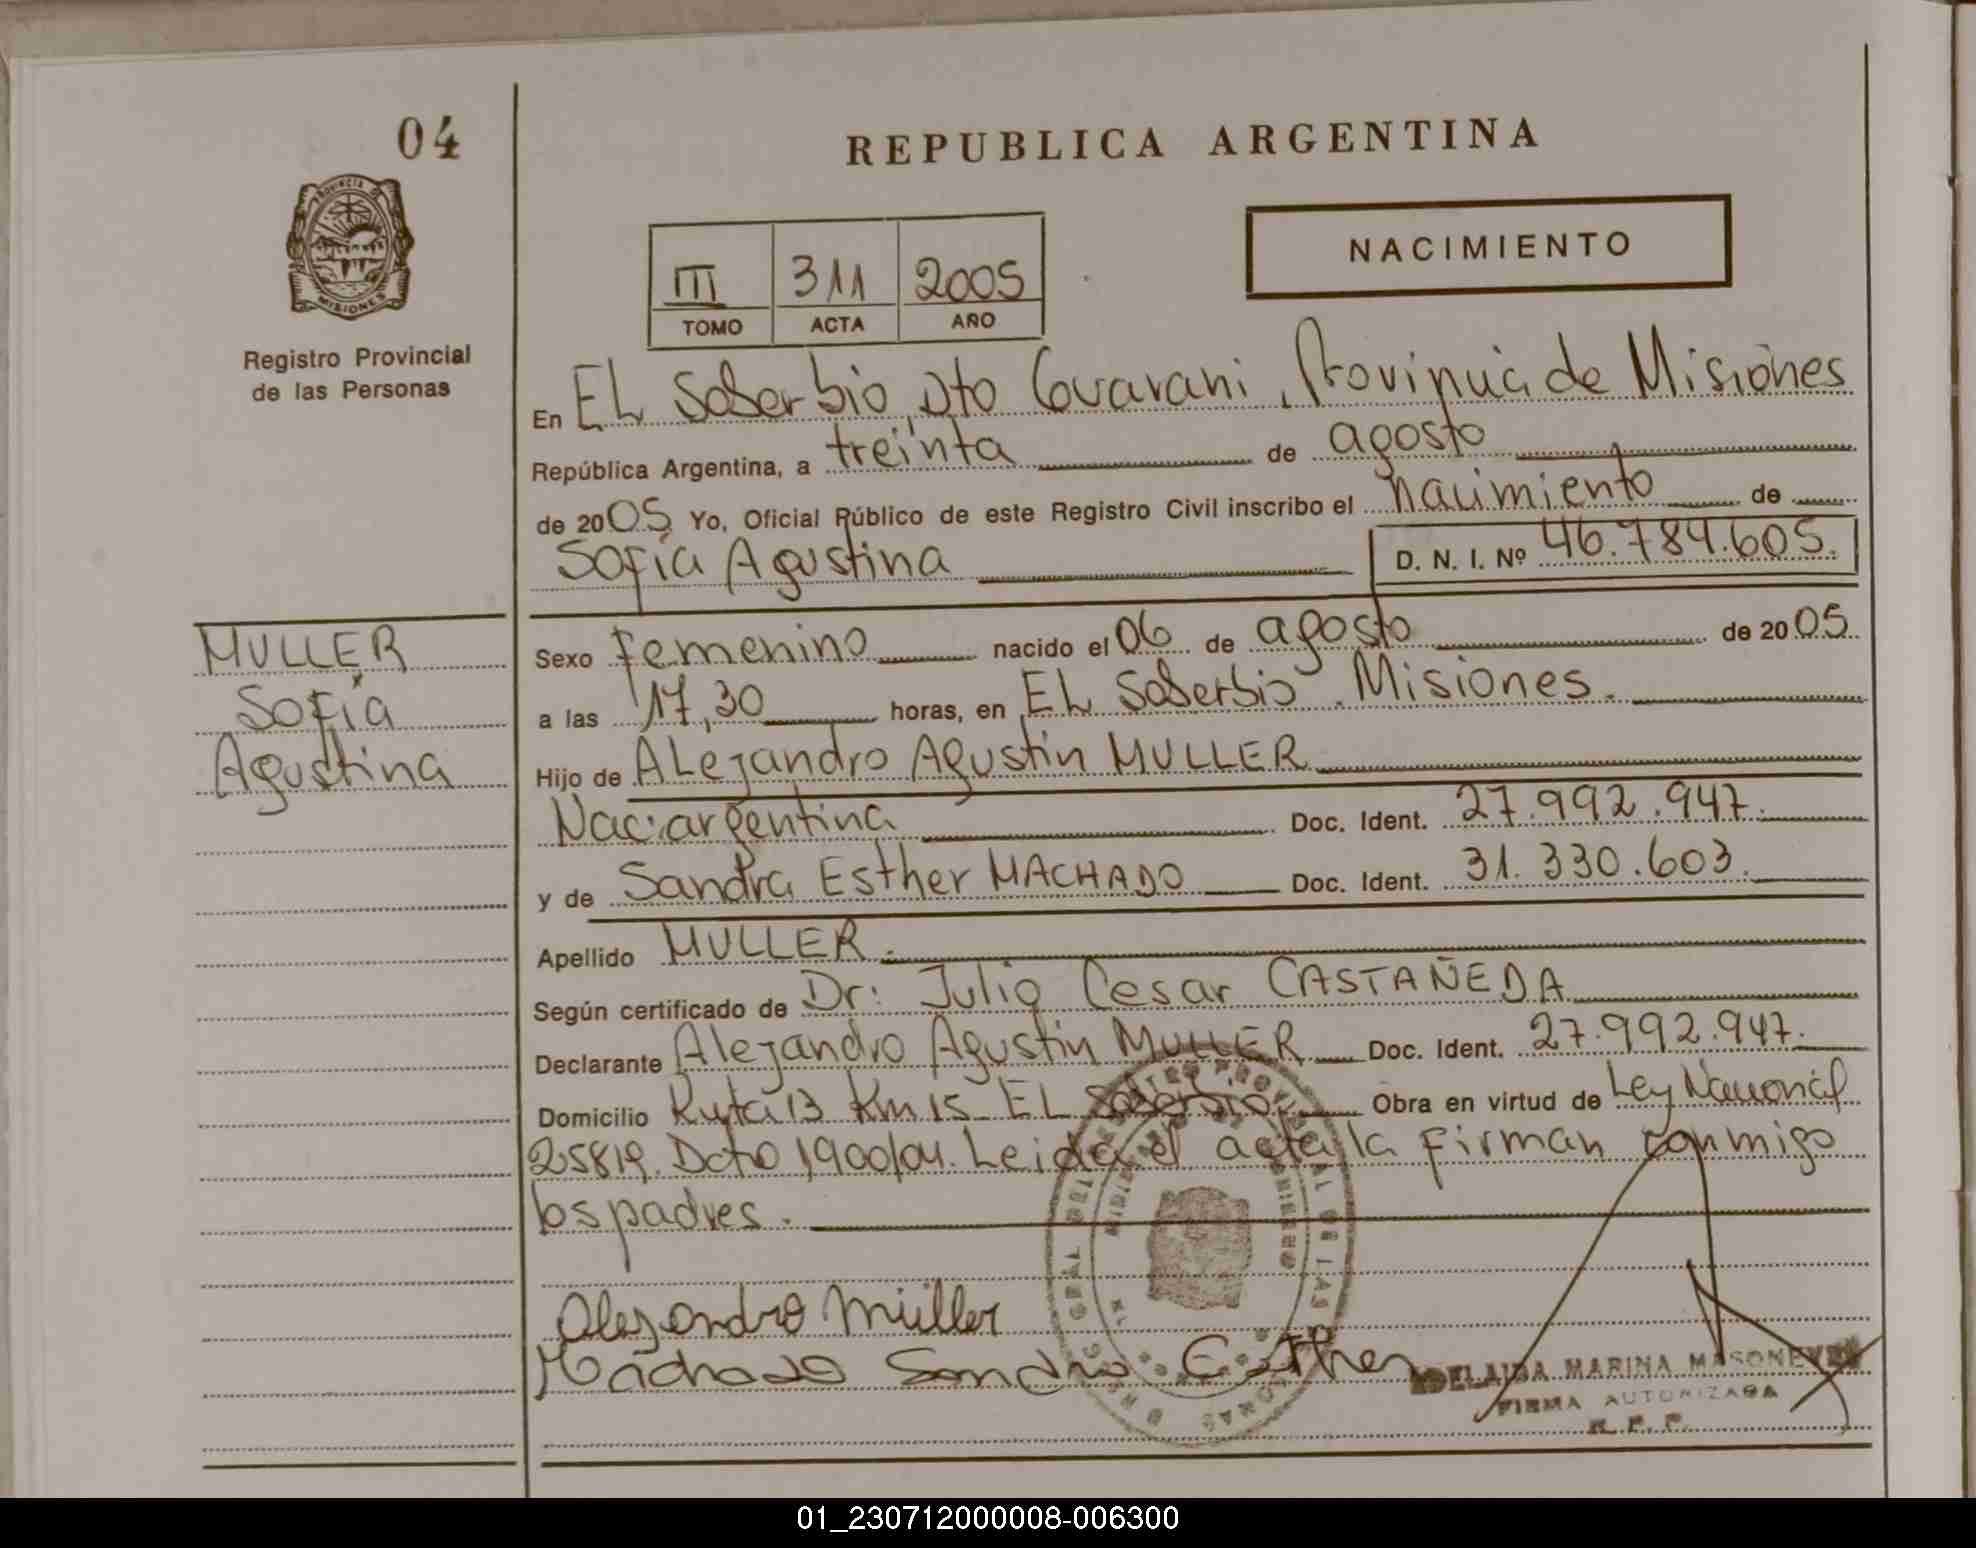 04
REPUBLICA ARGENTINA
PROVINCIA DE
MISIONES
Registro Provincial
de las Personas
NACIMIENTO
III 311 2005
TOMO ACTA AÑO
En EL Soberbio, Dto Guarani, Provincia de Misiones
República Argentina, a treinta de agosto
de 2005 Yo, Oficial Público de este Registro Civil inscribo el nacimiento de
Sofía Agustina D. N. I. Nº 46.784.605.
MULLER
Sofía
Agustina
Sexo Femenino nacido el 06 de agosto de 2005
a las 17,30 horas, en EL Soberbio, Misiones.
Hijo de ALejandro Agustin MULLER
Nac: argentina Doc. Ident. 27.992.947.
y de Sandra Esther MACHADO Doc. Ident. 31.330.603.
Apellido MULLER.
Según certificado de Dr: Julio Cesar CASTAÑEDA
Declarante Alejandro Agustin MULLER Doc. Ident. 27.992.947.
Domicilio Ruta 13 Km 15 EL Soberbio. Obra en virtud de Ley Nacional
25819. Dcto 1900/04. Leida el acta la firman conmigo
los padres.
Alejandro Müller
Machado Sandra Esther
FIRMA AUTORIZADA
R.P.P.
01_230712000008-006300